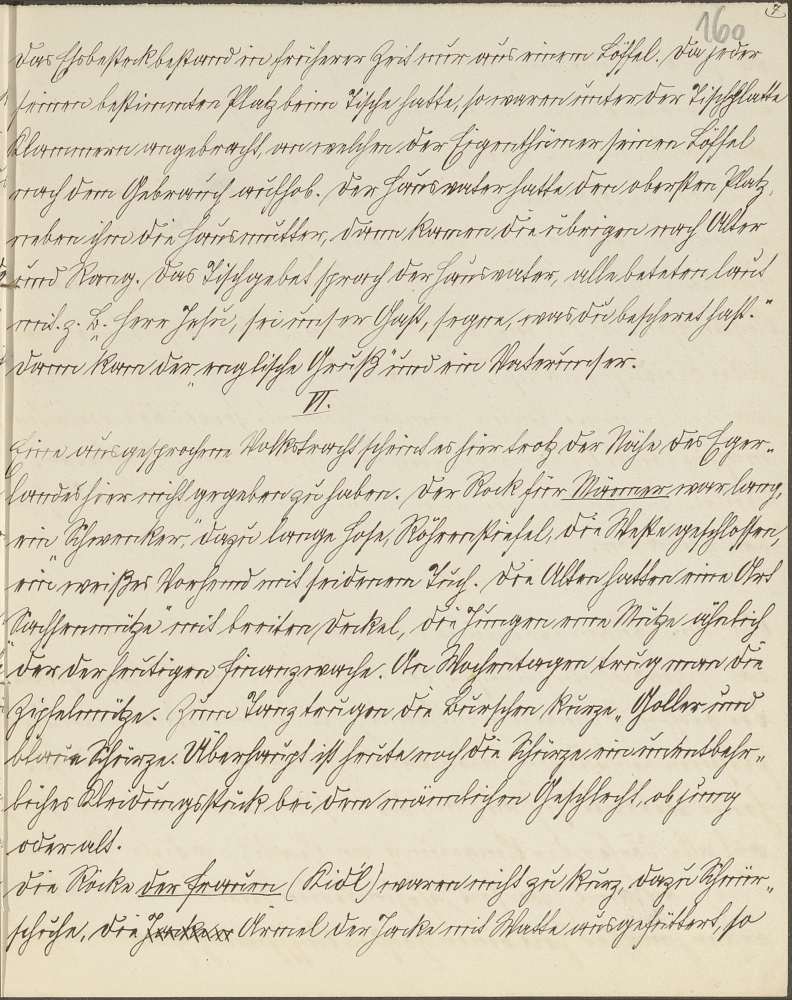 160
7
Das Eßbesteck bestand in früherer Zeit nur aus einem Löffel. Da jeder
seinen bestimmten Platz beim Tische hatte, so waren unter der Tischplatte
Klammern angebracht, an welchen der Eigenthümer seinen Löffel
nach dem Gebrauch aufhob. Der Hausvater hatte den obersten Platz,
neben ihm die Hausmutter, dann kamen die übrigen nach Alter
und Rang. Das Tischgebet sprach der Hausvater, alle beteten laut
mit. z. B. „Herr Jesu, sei unser Gast, segne, was du bescheret hast."
Dann kam der „englische Gruß" und ein Vaterunser.
VI.
Eine ausgesprochene Volkstracht scheint es hier trotz der Nähe des Eger-
landes hier nicht gegeben zu haben. Der Rock für Männer war lang,
ein „Schwenker," dazu lange Hose, Röhrenstiefel, die Weste geschlossen,
ein weißes Vorhemd mit seidenem Tuch. Die Alten hatten eine Art
„Sachsenmütze" mit breiten Deckel, die Jungen eine Mütze ähnlich
der der heutigen Finanzwache. An Wochentagen trug man die
Zipfelmütze. Zum Tanz trugen die Burschen kurze „Goller und
blaue Schürze. Überhaupt ist heute noch die Schürze ein unentbehr-
liches Kleidungsstück bei dem männlichen Geschlecht, ob jung
oder alt.
Die Röcke der Frauen (Kid'l) waren nicht zu kurz, dazu Schnür-
schuhe, die Ärmel der Jacke mit Watte ausgefüttert, so